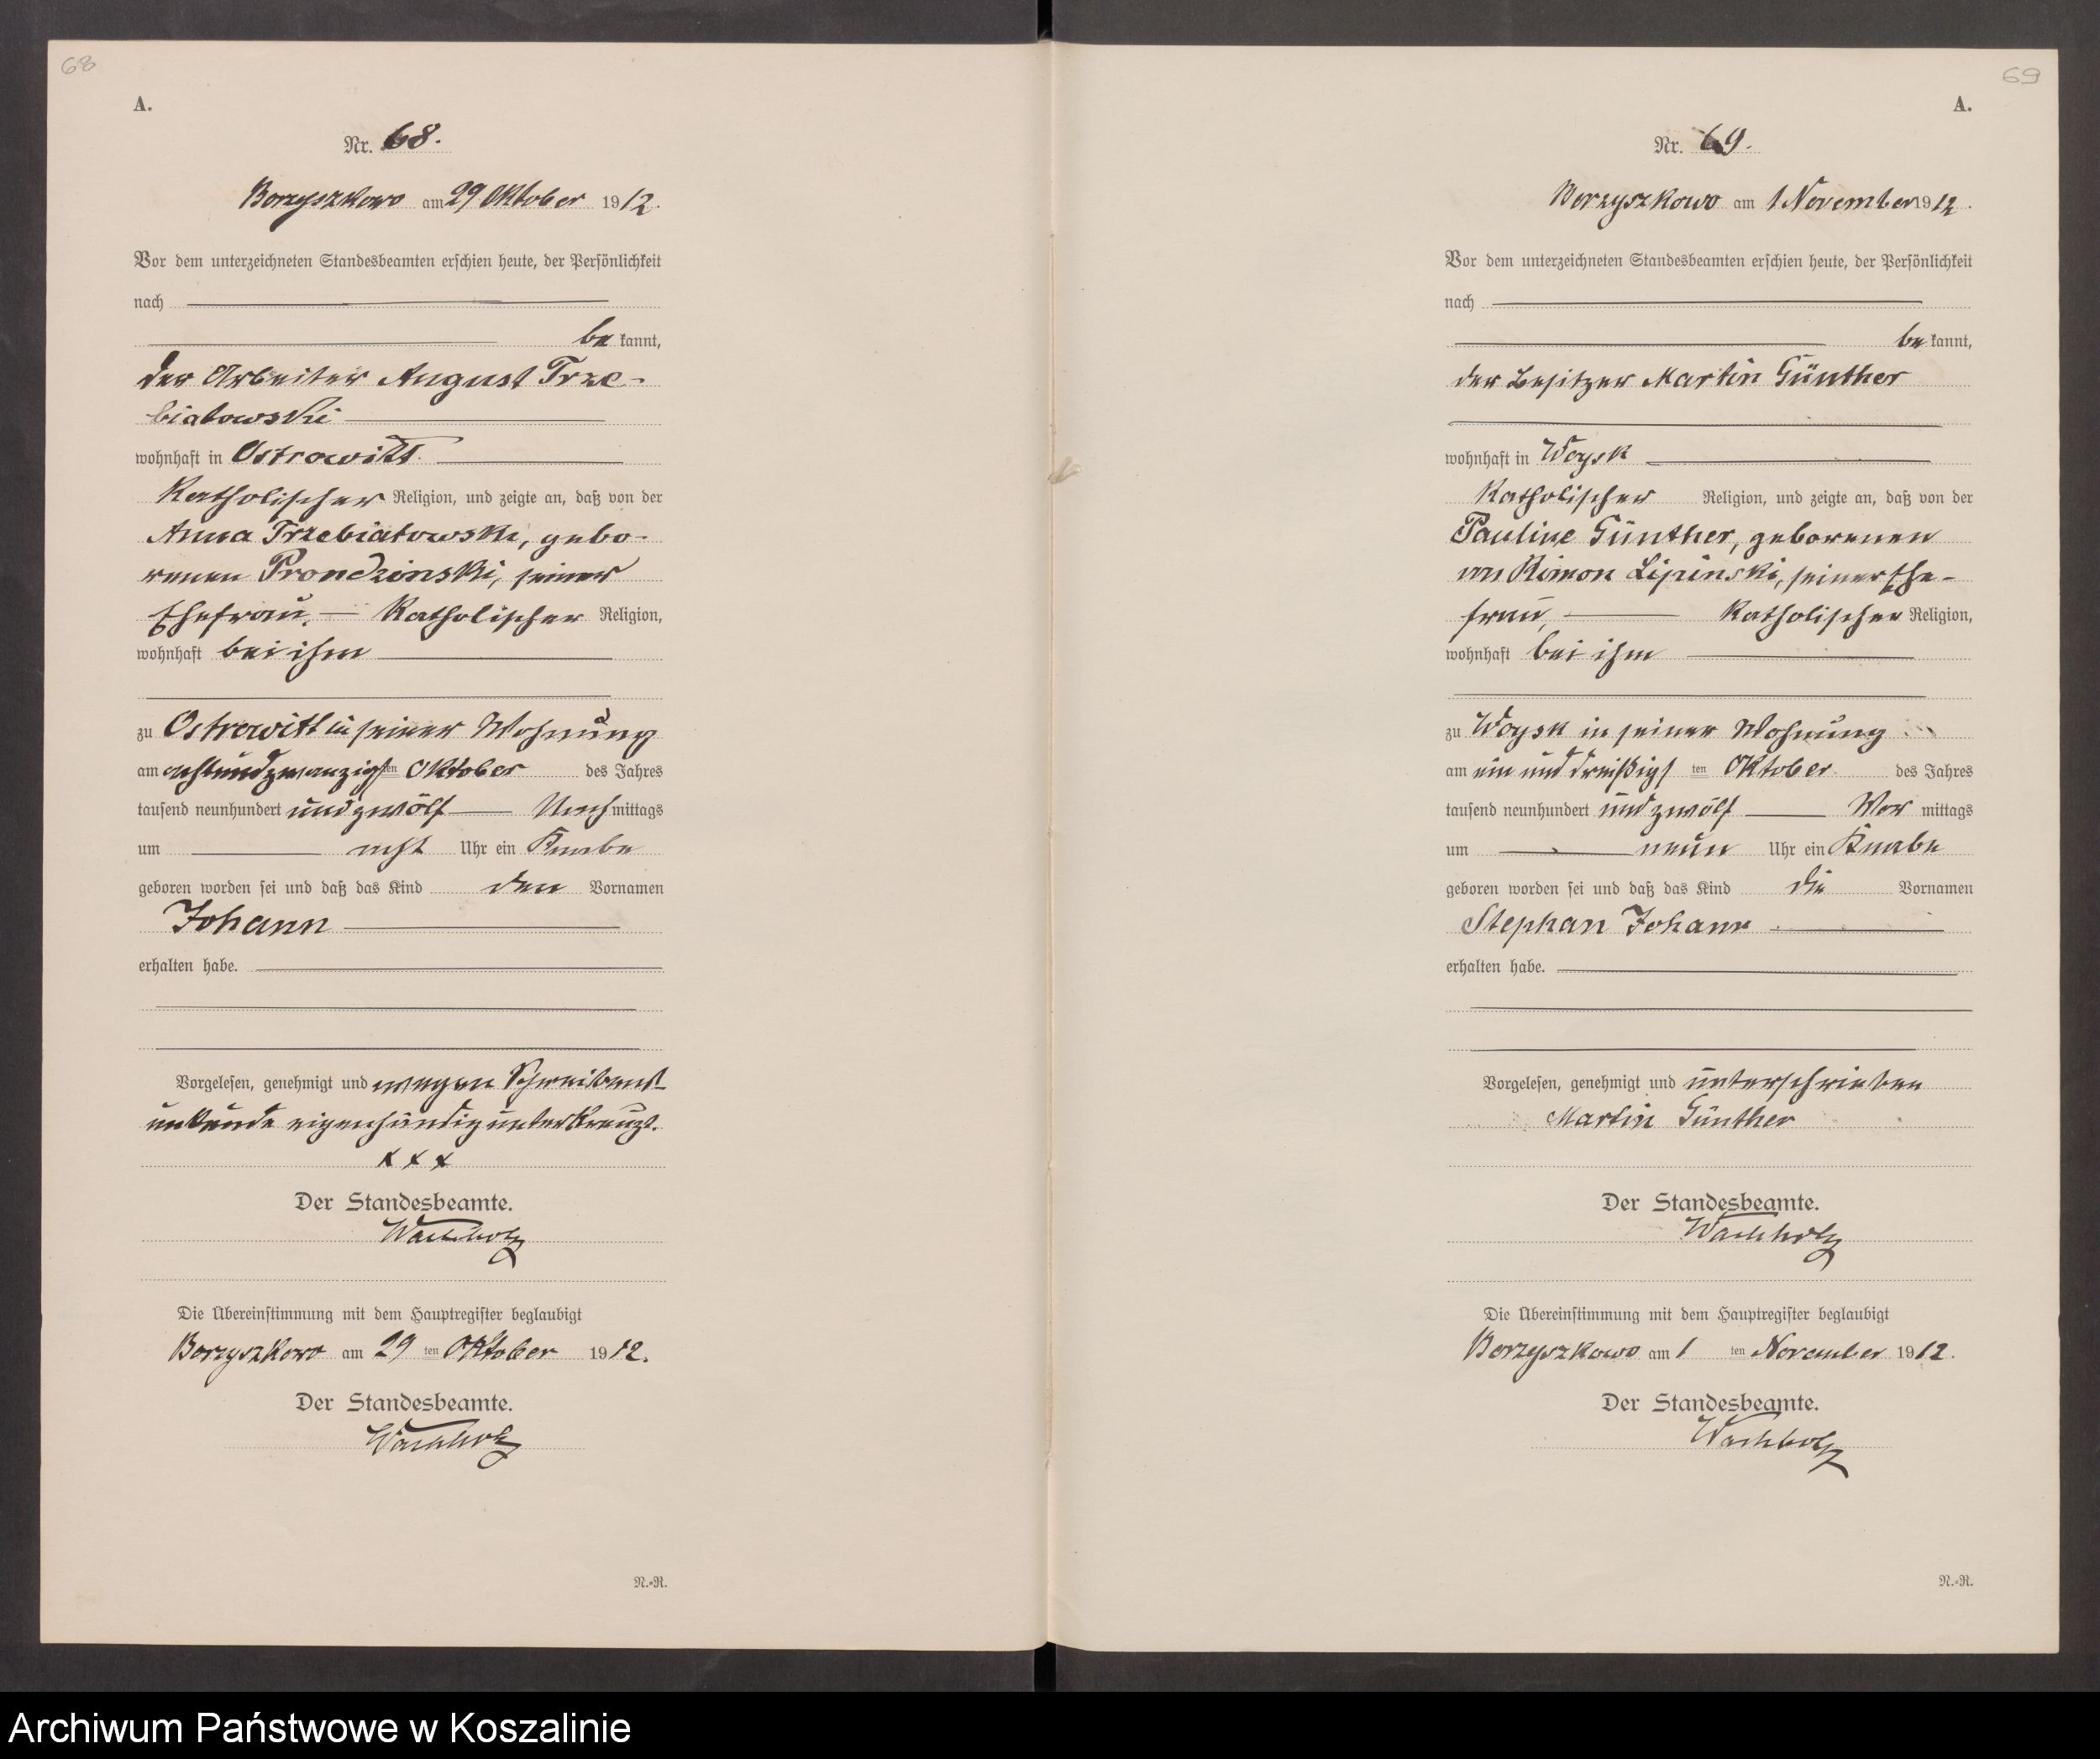 68
A.
Nr. 68.
Borzyszkowo am 29 Oktober 1912.
Vor dem unterzeichneten Standesbeamten erschien heute, der Persönlichkeit
nach
be kannt,
der Arbeiter August Trze-
biatowski
wohnhaft in Ostrowitt
katholischer Religion, und zeigte an, daß von der
Anna Trzebiatowski, gebo-
renen Prondzinski, seiner
Ehefrau, katholischer Religion,
wohnhaft bei ihm
zu Ostrowitt in seiner Wohnung
am achtundzwanzigsten Oktober des Jahres
tausend neunhundert und zwölf Nachmittags
um acht Uhr ein Knabe
geboren worden sei und daß das Kind den Vornamen
Johann
erhalten habe.
Vorgelesen, genehmigt und wegen Schreibens-
unkunde eigenhändig unterkreuzt.
x x x
Der Standesbeamte.
Wachholz
Die Übereinstimmung mit dem Hauptregister beglaubigt
Borzyszkowo am 29 ten Oktober 1912.
Der Standesbeamte.
Wachholz
N.-R.
69
A.
Nr. 69.
Borzyszkowo am 1 November 1912.
Vor dem unterzeichneten Standesbeamten erschien heute, der Persönlichkeit
nach
be kannt,
der Besitzer Martin Günther
wohnhaft in Woysk
katholischer Religion, und zeigte an, daß von der
Pauline Günther, geborenen
von Lipinski, seiner Ehe-
frau, katholischer Religion,
wohnhaft bei ihm
zu Woysk in seiner Wohnung
am ein und dreißigs ten Oktober des Jahres
tausend neunhundert und zwölf Vor mittags
um neun Uhr ein Knabe
geboren worden sei und daß das Kind die Vornamen
Stephan Johann
erhalten habe.
Vorgelesen, genehmigt und unterschrieben
Martin Günther
Der Standesbeamte.
Wachholz
Die Übereinstimmung mit dem Hauptregister beglaubigt
Borzyszkowo am 1 ten November 1912.
Der Standesbeamte.
Wachholz
N.-R.
Archiwum Państwowe w Koszalinie